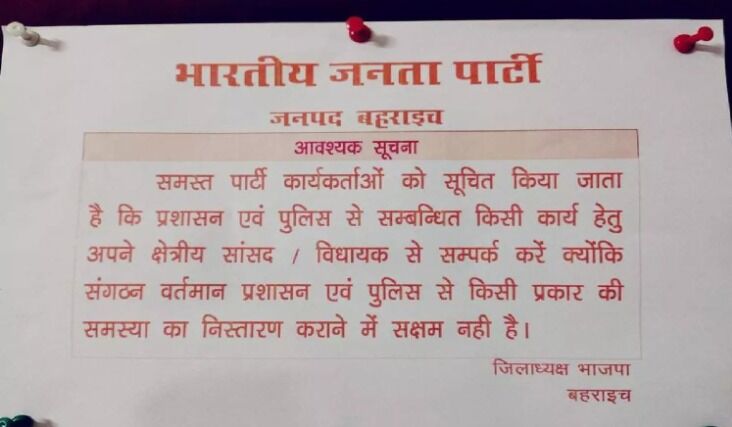 भारतीय जनता पार्टी
जनपद बहराइच
आवश्यक सूचना
समस्त पार्टी कार्यकर्ताओं को सूचित किया जाता
है कि प्रशासन एवं पुलिस से सम्बन्धित किसी कार्य हेतु
अपने क्षेत्रीय सांसद / विधायक से सम्पर्क करें क्योंकि
संगठन वर्तमान प्रशासन एवं पुलिस से किसी प्रकार की
समस्या का निस्तारण कराने में सक्षम नही है।
जिलाध्यक्ष भाजपा
बहराइच